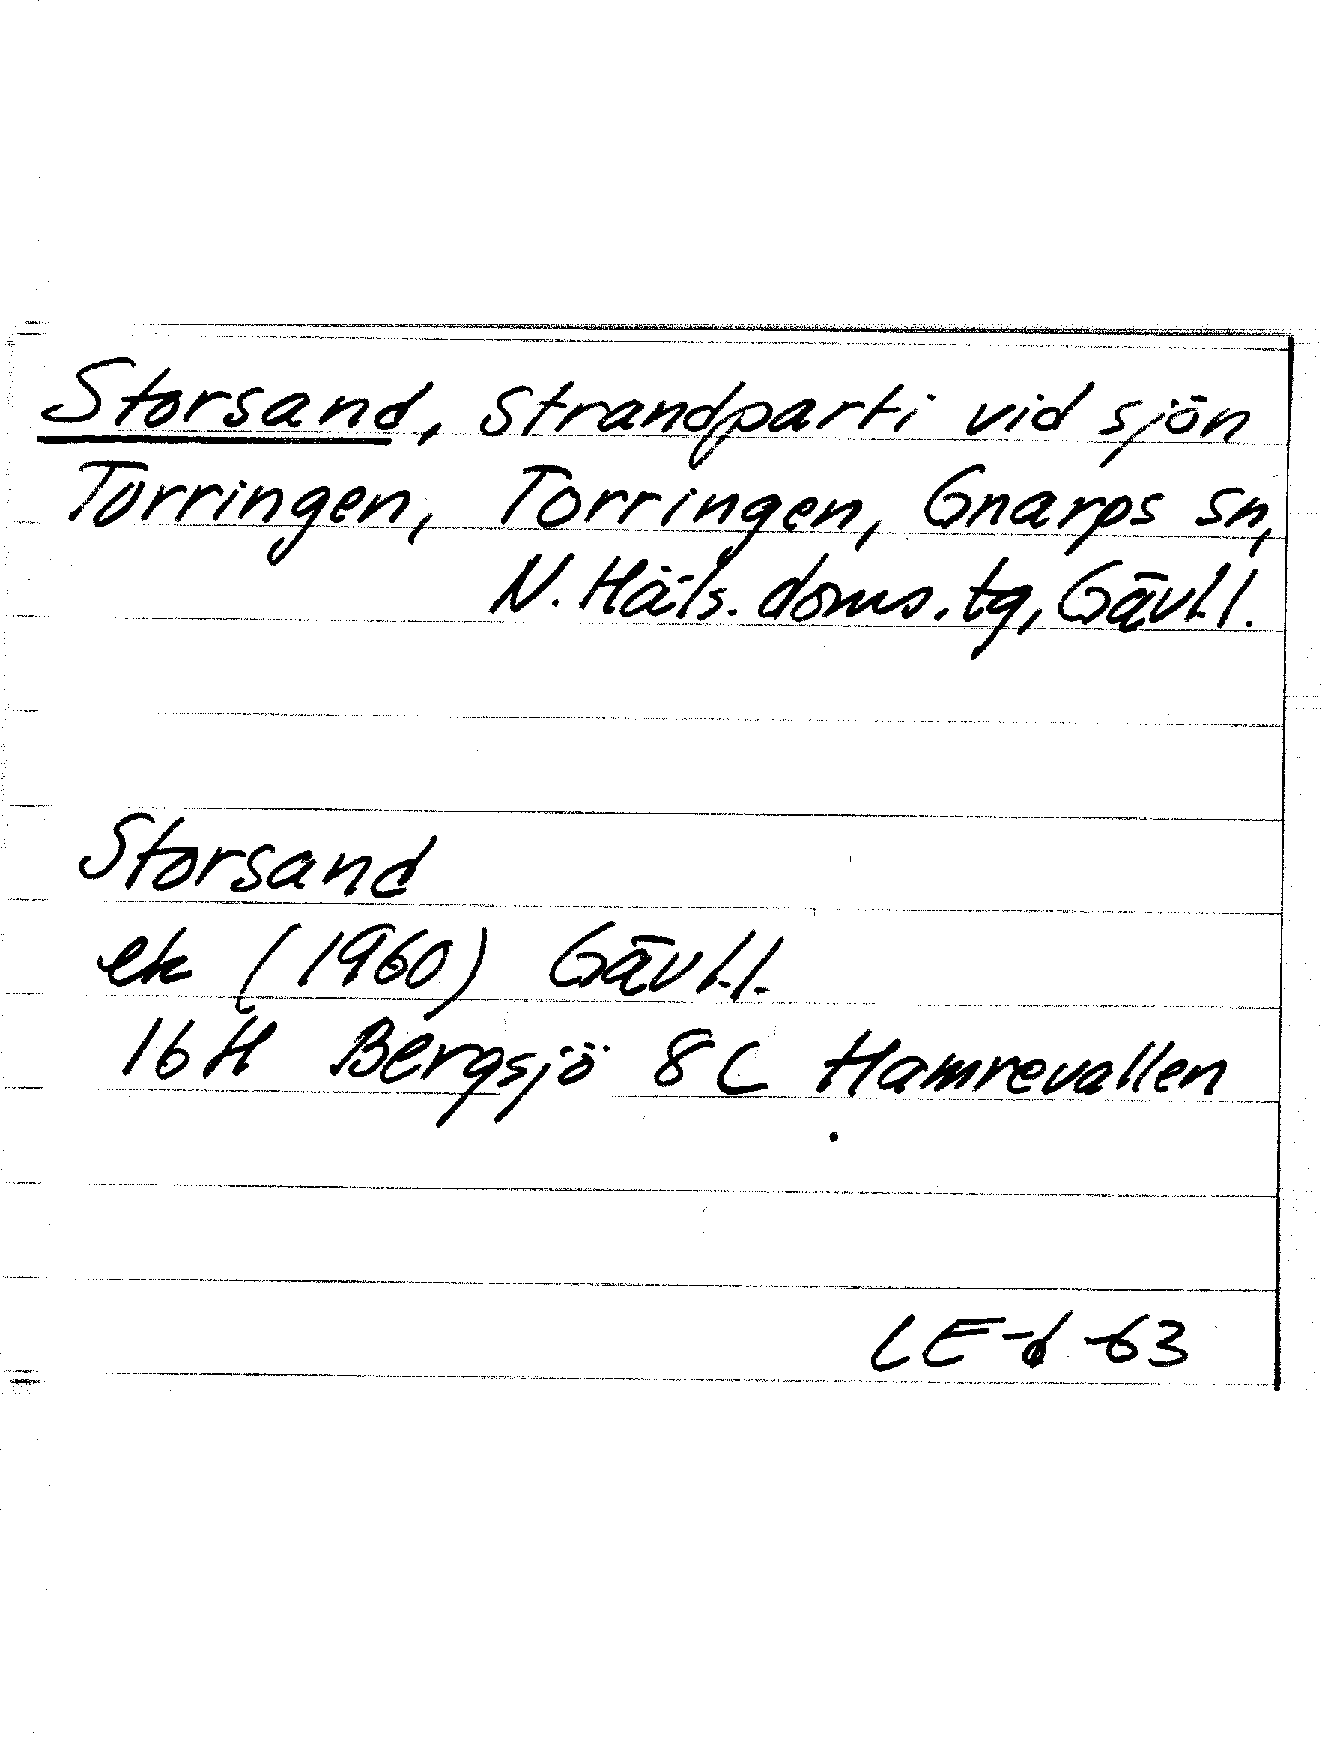 Storsand, Strandparti vid sjön
Torringen, Torringen, Gnarps sn,
N. Häls. doms. tg, Gävl. l.
Storsand
ek (1960) Gävl. l.
16H Bergsjö 8C Hamrevallen
LE-d-63